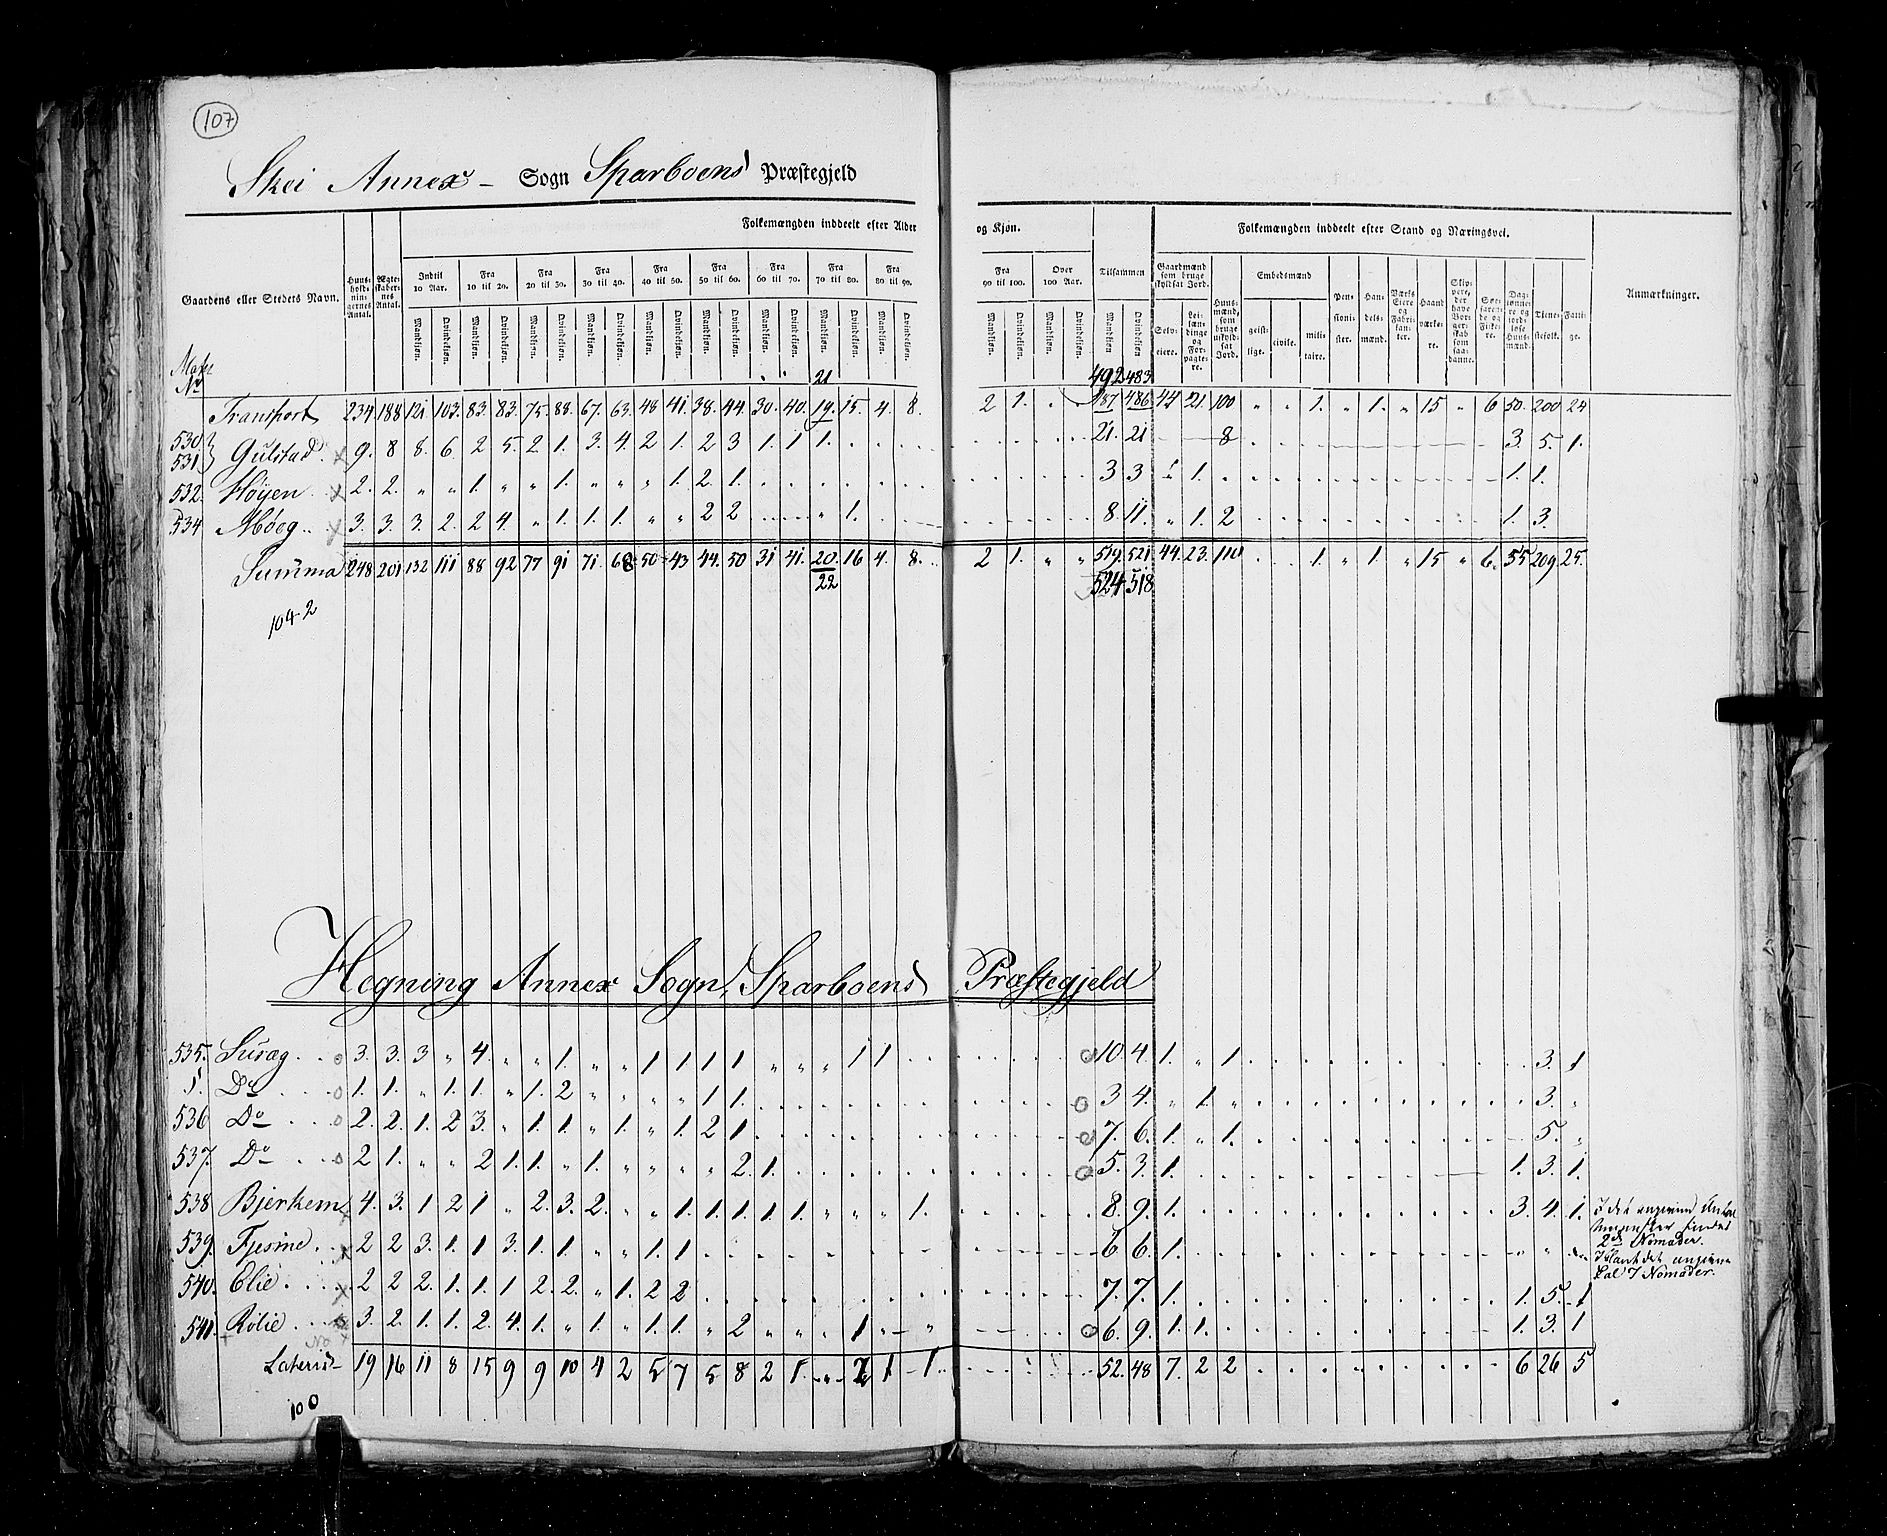 107
Skei Annex - Sogn Sparboens Præstegjeld
Folkemængden inddeelt efter Alder og Kjøn.
Folkemængden inddeelt efter Stand og Næringsvei.
Gaardens eller Stedets Navn.
Huus-holdnin-gernes Antal.
Ægte-skaber-nes Antal.
Indtil 10 Aar. Fra 10 til 20. Fra 20 til 30. Fra 30 til 40. Fra 40 til 50. Fra 50 til 60. Fra 60 til 70. Fra 70 til 80. Fra 80 til 90. Fra 90 til 100. Over 100 Aar. Tilsammen
Mandkiøn. Qvindekiøn.
Gaardmænd som bruge skyldsat Jord.
Selv-eiere. Lei-lændinge og For-pagte-re.
Huus-mænd, som bruge uskyld-sat Jord.
Embedsmænd
geist-lige. civile. mili-taire.
Pen-sioni-ster. Han-dels-mænd. Værks Eiere og Fabri-kan-ter. Haand værke-re. Skip-pere, der have Bor-ger-skab som saa-danne. Søe-faren-de og Fiske-re. Dag-lønne-re og jord-løse Huus-mænd. Tiene-stefolk. Fatti-ge.
Anmærkninger.
Matr N°
21 492 483
Transport 234 188 121 103. 83. 83. 75. 88. 67. 63. 48 41. 38. 44. 30. 40. 19. 15. 4. 8. 2 1. 487 486 44 21. 100 " " 1. " 1. " 15 " 6 50. 200 24
530 531 Gulstad. 9. 8 8. 6. 2 5. 2 1. 3. 4. 2 1. 2 3 1. 1 1. 21. 21 8 3. 5. 1.
532. Høÿen 2. 2. " " 1. " " 1. " " " 1. 2. 1. 3 3 1. 1. 1.
534 Møeg.. 3. 3. 3. 2. 2 4. " 1. 1. 1. " " 2 2 " 1. 8. 11. " 1. 2 1. 3.
Summa 248 201 132 111 88 92 77 91 71. 68 50 43 44. 50 31 41. 20. 16 4. 8. 2 1. " " 519. 521 44. 23. 110 1. " 1. " 15 " 6. 55 209. 25.
22 524 518
1042
Hegning Annex Sogn, Sparboens Præstegjeld
535. 3. 3. 3 " 4. " " 1. " " 1 1 1 1 " " " 1 1 10. 4. 1. " 1 3. 1
D° 1. 1. " 1. 1. " 1. 2 " " " " 1 1. 3 4. " 1. " 3. "
536 D° 2. 2. 1. 2 3. " 1. 1. " 1. " 1. 2 1 7. 6. 1. " 1. 5. "
537. D° 2 1. " " 2 1. 1. " 1. " " " " 2. 1. 5. 3. 1. 1. 3. 1.
538 Bjerkem 4. 3. 1 2 1 " 2. 3. 2. " " 1. 1. 1. 1. 1. " " " 1. 8. 9. 1. 3. 4. 1.
539. Fjesme.. 2 2 3. 1. 1 3. 1. 1. " " 1. 1 6 6. 1. " "
540. Elie. 2 2 2. 1. 1. 1 2. 2. " 1. 2 2 7. 7. 1. 1. 5. 1
541. Rolie 3. 2. 1. 1. 2. 4. 1. " 1. " 1. 1. " 2 " " " 1 " 6. 9. 1. 1. 1. 3. 1
2de Nomader.
7 Nomader.
Lateris 19 16 11 8 15 9 9 10 4 2 5 7 5 8 2 1. 1 1. 52. 48 7. 2 2 6 26 5
100